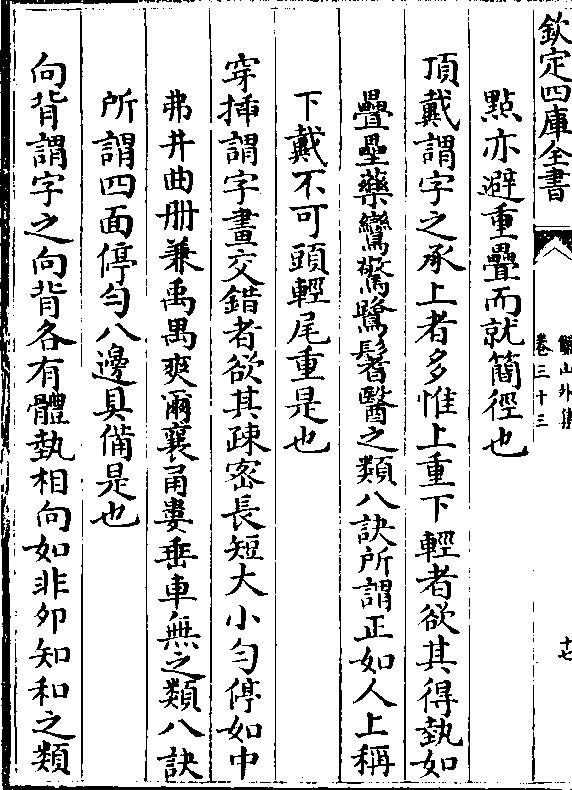 欽定四庫全書
儼山外集
卷三十三
十七
點亦避重疊而就簡徑也
頂戴謂字之承上者多惟上重下輕者欲其得埶如
疊壘藥鸞驚鷺髻醫之類八訣所謂正如人上稱
下戴不可頭輕尾重是也
穿揷謂字畫交錯者欲其疎密長短大小勻停如中
弗井曲册兼禹禺爽爾襄甬婁垂車無之類八訣
所謂四面停勻八邊具備是也
向背謂字之向背各有體埶相向如非夘知和之類